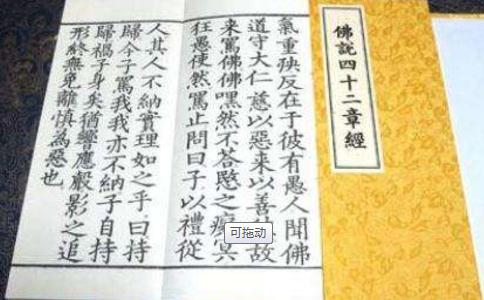 佛説四十二章經
氣重殃反在于彼有愚人聞佛
道守大仁慈以惡來以善故
來罵佛佛嘿然不答愍之癡冥
狂愚使然罵止問曰子以禮從
人其人不納實理如之乎曰持
歸今子罵我我亦不納子自持
歸禍子身矣猶響應聲影之追
形終無免離慎為惡也
可拖动